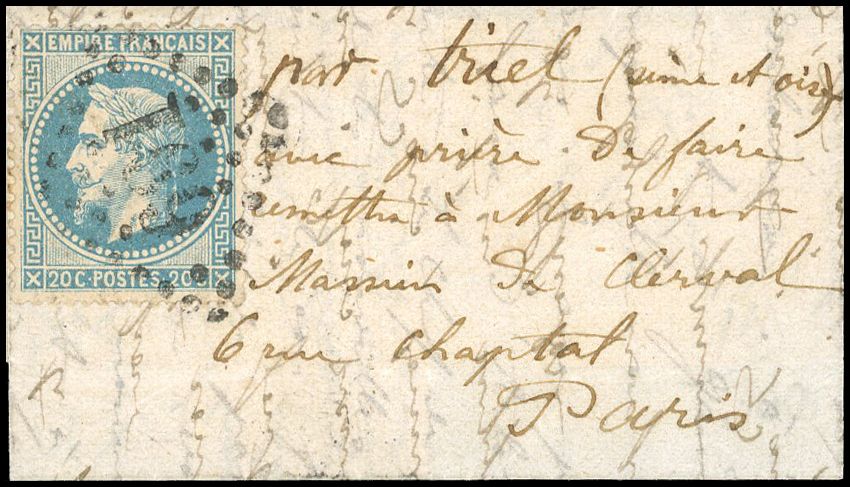 EMPIRE FRANÇAIS
20 C·POSTES·20 C
par triel (seine et oise)
avec prière de faire
remettre à Monsieur
de Clerval
6 rue Chaptal
Paris